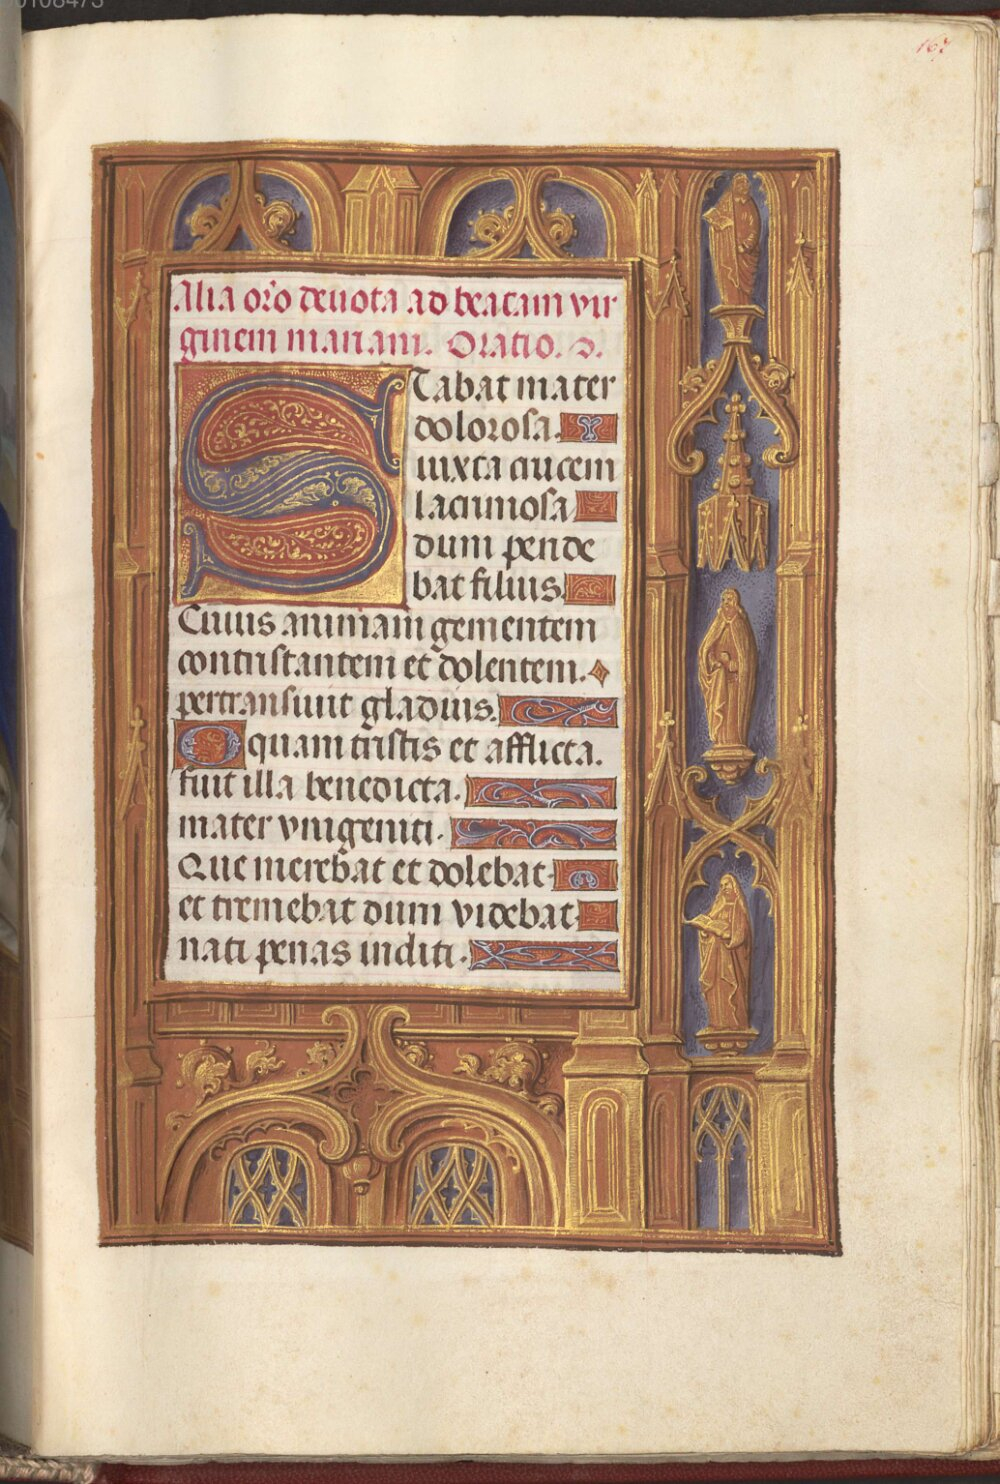 00108473
167
Alia orō deuota ad beatam vir
ginem mariam. Oratio.
Stabat mater
dolorosa.
iuxta crucem
lacrimosa
dum pende
bat filius.
Cuius animam gementem
contristantem et dolentem.
pertransiuit gladius.
O quam tristis et afflicta.
fuit illa benedicta.
mater vnigeniti.
Que merebat et dolebat
et tremebat dum videbat
nati penas incliti.